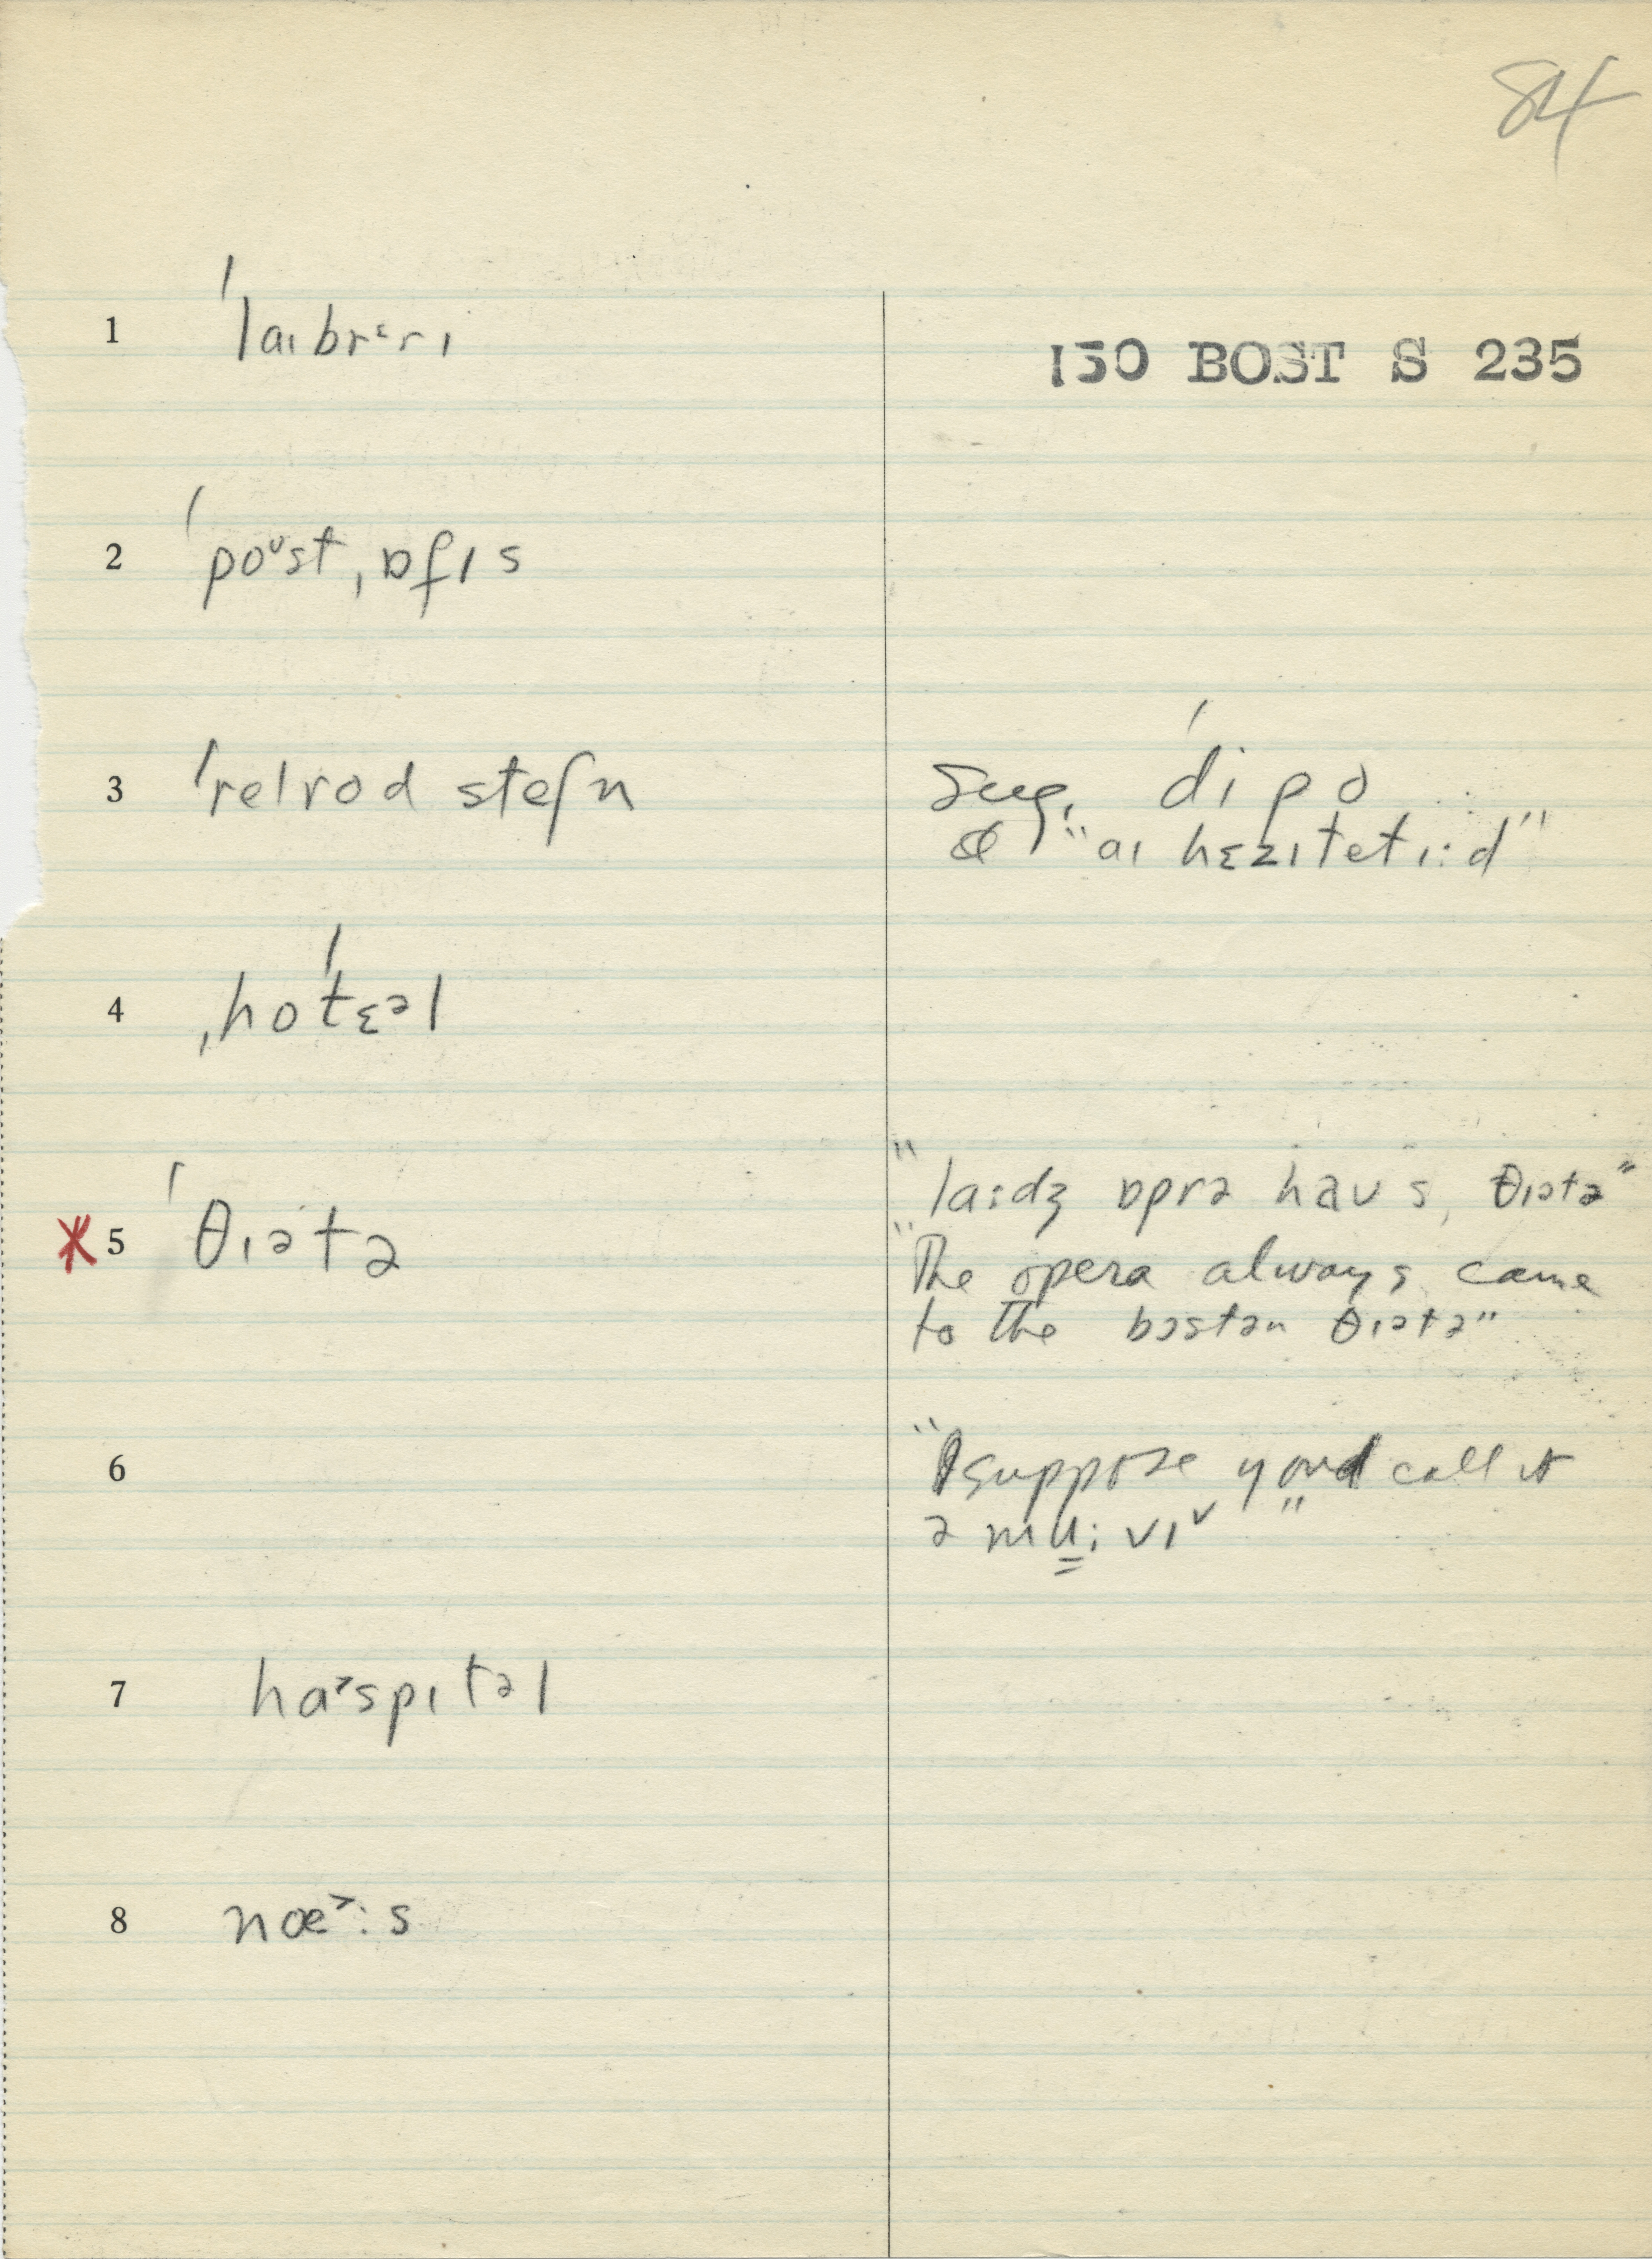 84
1 ˈlaɪbrᵋrɪ
150 BOST S 235
2 ˈpoᶷstˌɒfɪs
3 ˈrelrod steʃn
Sug. ˈdipo
"aɪ hɛzɪtetɪ:d"
4 ˌhoˈtɛᵊl
5 ˈθɪətə
"la:dʒ ɒprə haus, θɪətə"
"The opera always came
to the bɔstən θɪətə"
6 "I suppose you'd call it
ə mu:vɪ˅"
7 ha˃spɪtəl
8 næ˃:s